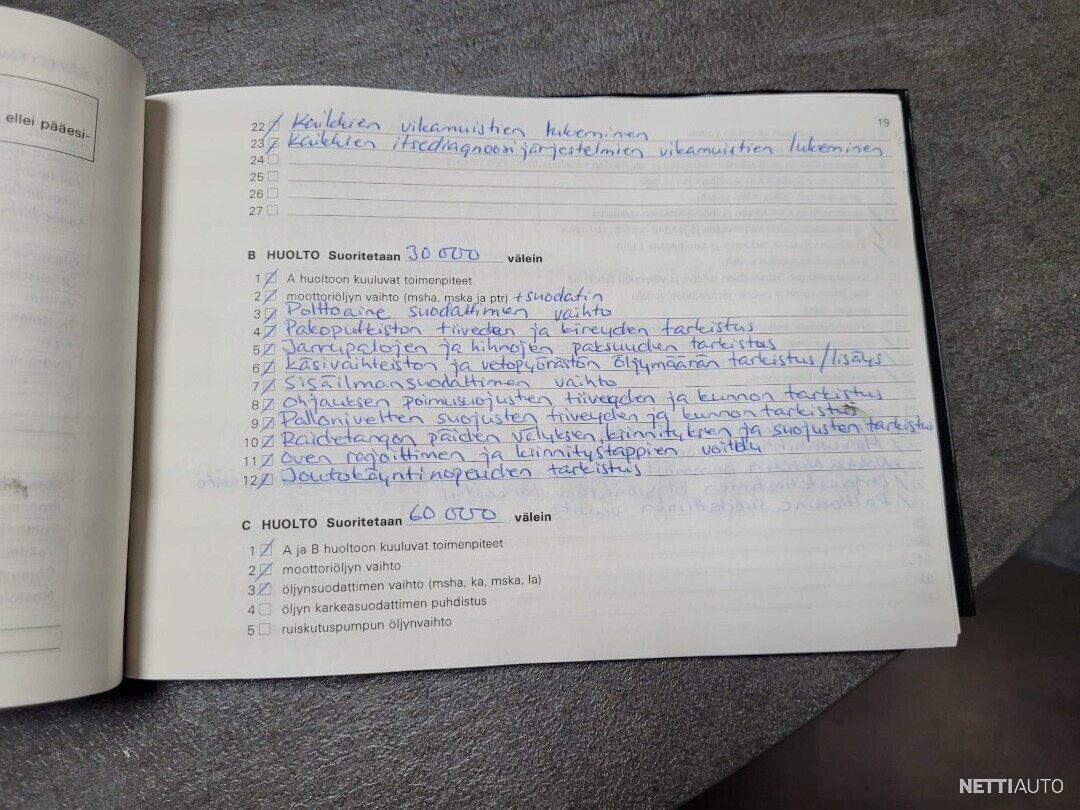 ellei pääesi-
19
22 Kaikkien vikamuistien lukeminen
23 Kaikkien itsediagnoosijärjestelmien vikamuistien lukeminen
24
25
26
27
B HUOLTO Suoritetaan 30 000 välein
1 A huoltoon kuuluvat toimenpiteet
2 moottoriöljyn vaihto (msha, mska ja ptr) + suodatin
3 Polttoaine suodattimien vaihto
4 Pakoputkiston tiiveden ja kireyden tarkistus
5 Jarrupalojen ja hihnojen paksuuden tarkistus
6 Käsivaihteiston ja vetopyörästön öljymäärän tarkistus/lisäys
7 Sisäilmansuodattimen vaihto
8 Ohjauksen poimusuojusten tiiveyden ja kunnon tarkistus
9 Pallonivelten suojusten tiiveyden ja kunnon tarkistus
10 Raidetangon päiden välyksen, kiinnityksen ja suojusten tarkistus
11 Oven rajoittimen ja kiinnitystappien voitelu
12 Joutokäyntinopeuden tarkistus
C HUOLTO Suoritetaan 60 000 välein
1 A ja B huoltoon kuuluvat toimenpiteet
2 moottoriöljyn vaihto
3 öljynsuodattimen vaihto (msha, ka, mska, la)
4 öljyn karkeasuodattimen puhdistus
5 ruiskutuspumpun öljynvaihto
NETTIAUTO